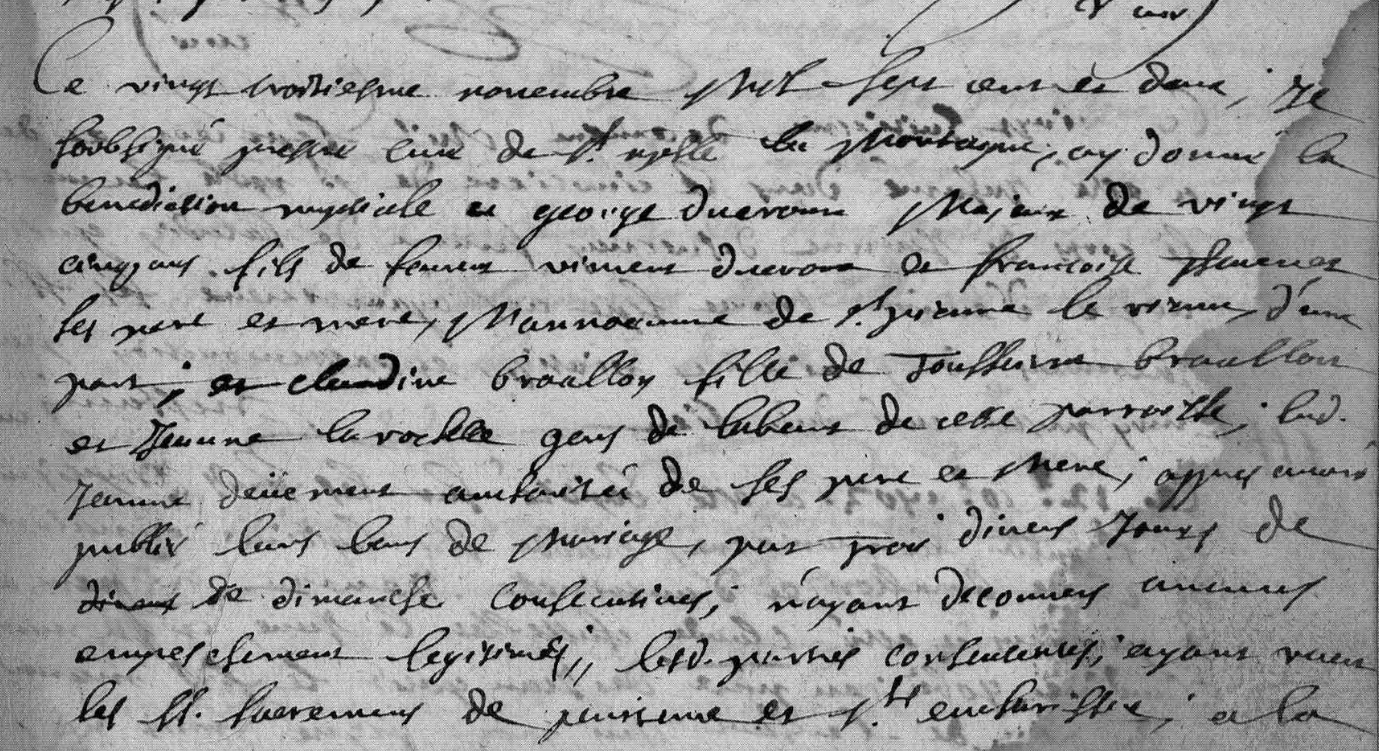 Ce vingt troisiesme novembre Mil Sept cent et deux, Je
soubsigné prestre curé de St. la Montagne, ay donné la
benediction nuptiale a george ducroux Majeur de vingt
cinq ans fils de feurent vincent ducroux et francoise
ses pere et mere, de St. le d'une
part; et claudine braillon fille de Toussaint braillon
et Jeanne la rochette gens de labeur de cette parroisse, lad.
Jeanne deüement authorisée de ses pere et Mere; appres avoir
publié leurs bans de Mariage, par trois divers Jours de
de dimanche consecutives, n'ayant decouvert aucuns
empeschement legitimes,, lesd. parties consentantes, ayant receu
les SS. sacremens de penitence et Ste eucharistie, a la